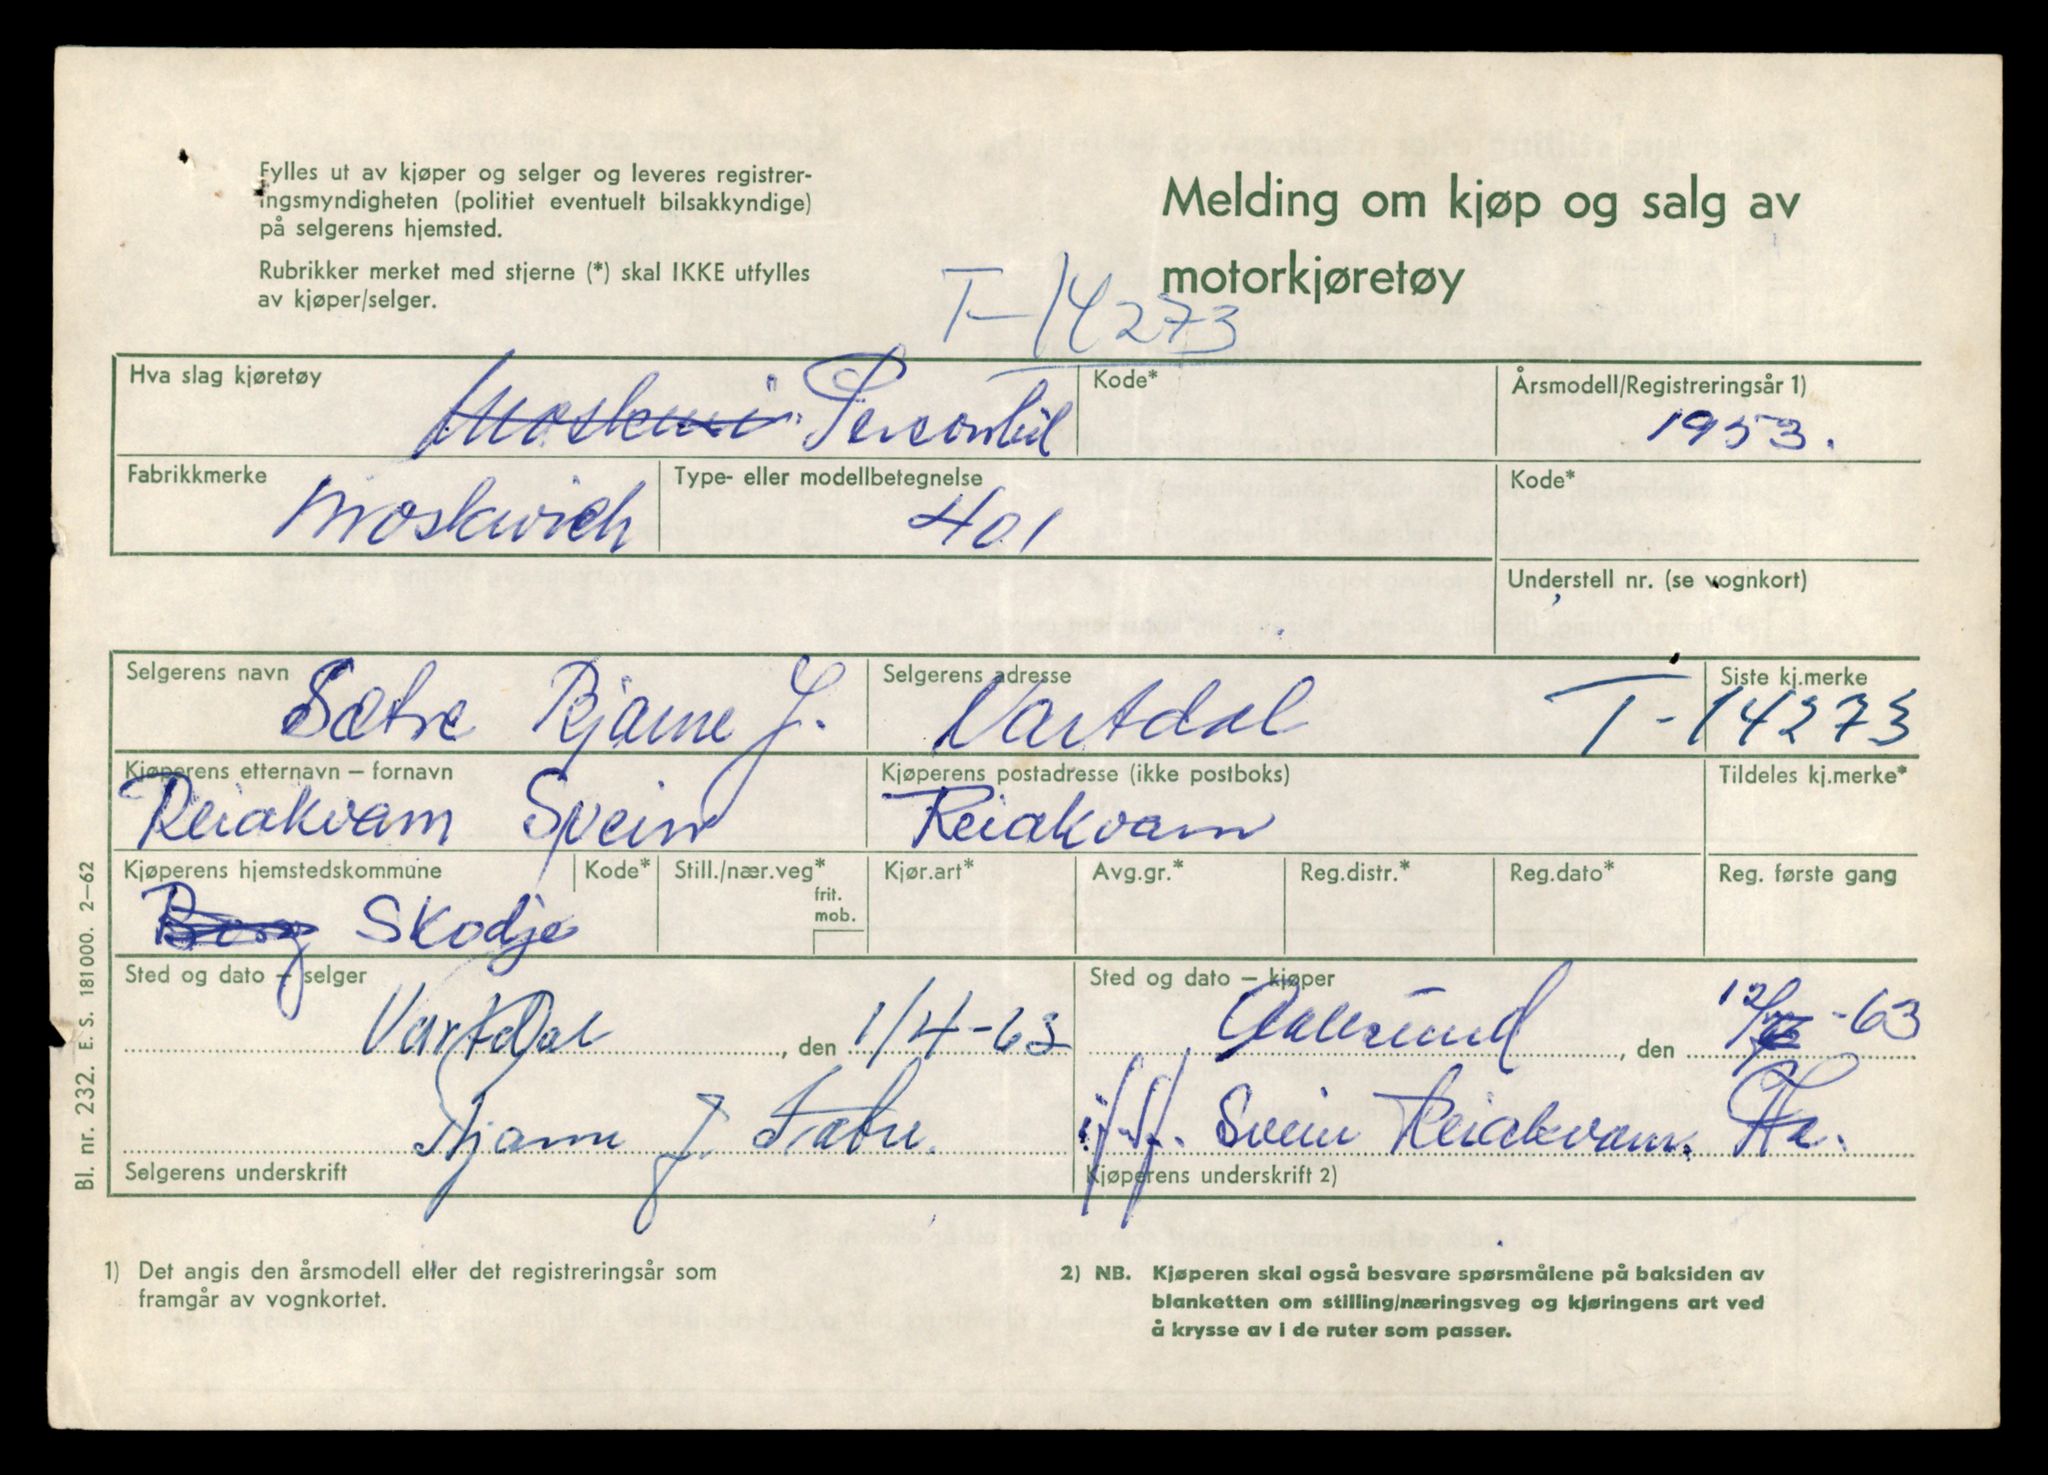 Fylles ut av kjøper og selger og leveres registrer-
ingsmyndigheten (politiet eventuelt bilsakkyndige)
på selgerens hjemsted.
Rubrikker merket med stjerne (*) skal IKKE utfylles
av kjøper/selger.
Melding om kjøp og salg av
motorkjøretøy
T-14273
Hva slag kjøretøy
Personbil
Kode*
Årsmodell/Registreringsår 1)
1953.
Fabrikkmerke
Moskwich
Type- eller modellbetegnelse
401
Kode*
Understell nr. (se vognkort)
Selgerens navn
Sætre Bjarne J.
Selgerens adresse
Vartdal
Siste kj.merke
T-14273
Kjøperens etternavn – fornavn
Reiakvam Svein
Kjøperens postadresse (ikke postboks)
Reiakvam
Tildeles kj.merke*
Kjøperens hjemstedskommune
Berg Skodje
Kode*
Still./nær.veg*
frit.
mob.
Kjør.art*
Avg.gr.*
Reg.distr.*
Reg.dato*
Reg. første gang
Sted og dato – selger
Vartdal, den 1/4-63
Sted og dato – kjøper
Aalesund, den 12/ -63
Bjarne J. Sætre.
Selgerens underskrift
f.f. Svein Reiakvam.
Kjøperens underskrift 2)
Bl. nr. 232. E. S. 181000. 2–62
1) Det angis den årsmodell eller det registreringsår som
framgår av vognkortet.
2) NB. Kjøperen skal også besvare spørsmålene på baksiden av
blanketten om stilling/næringsveg og kjøringens art ved
å krysse av i de ruter som passer.